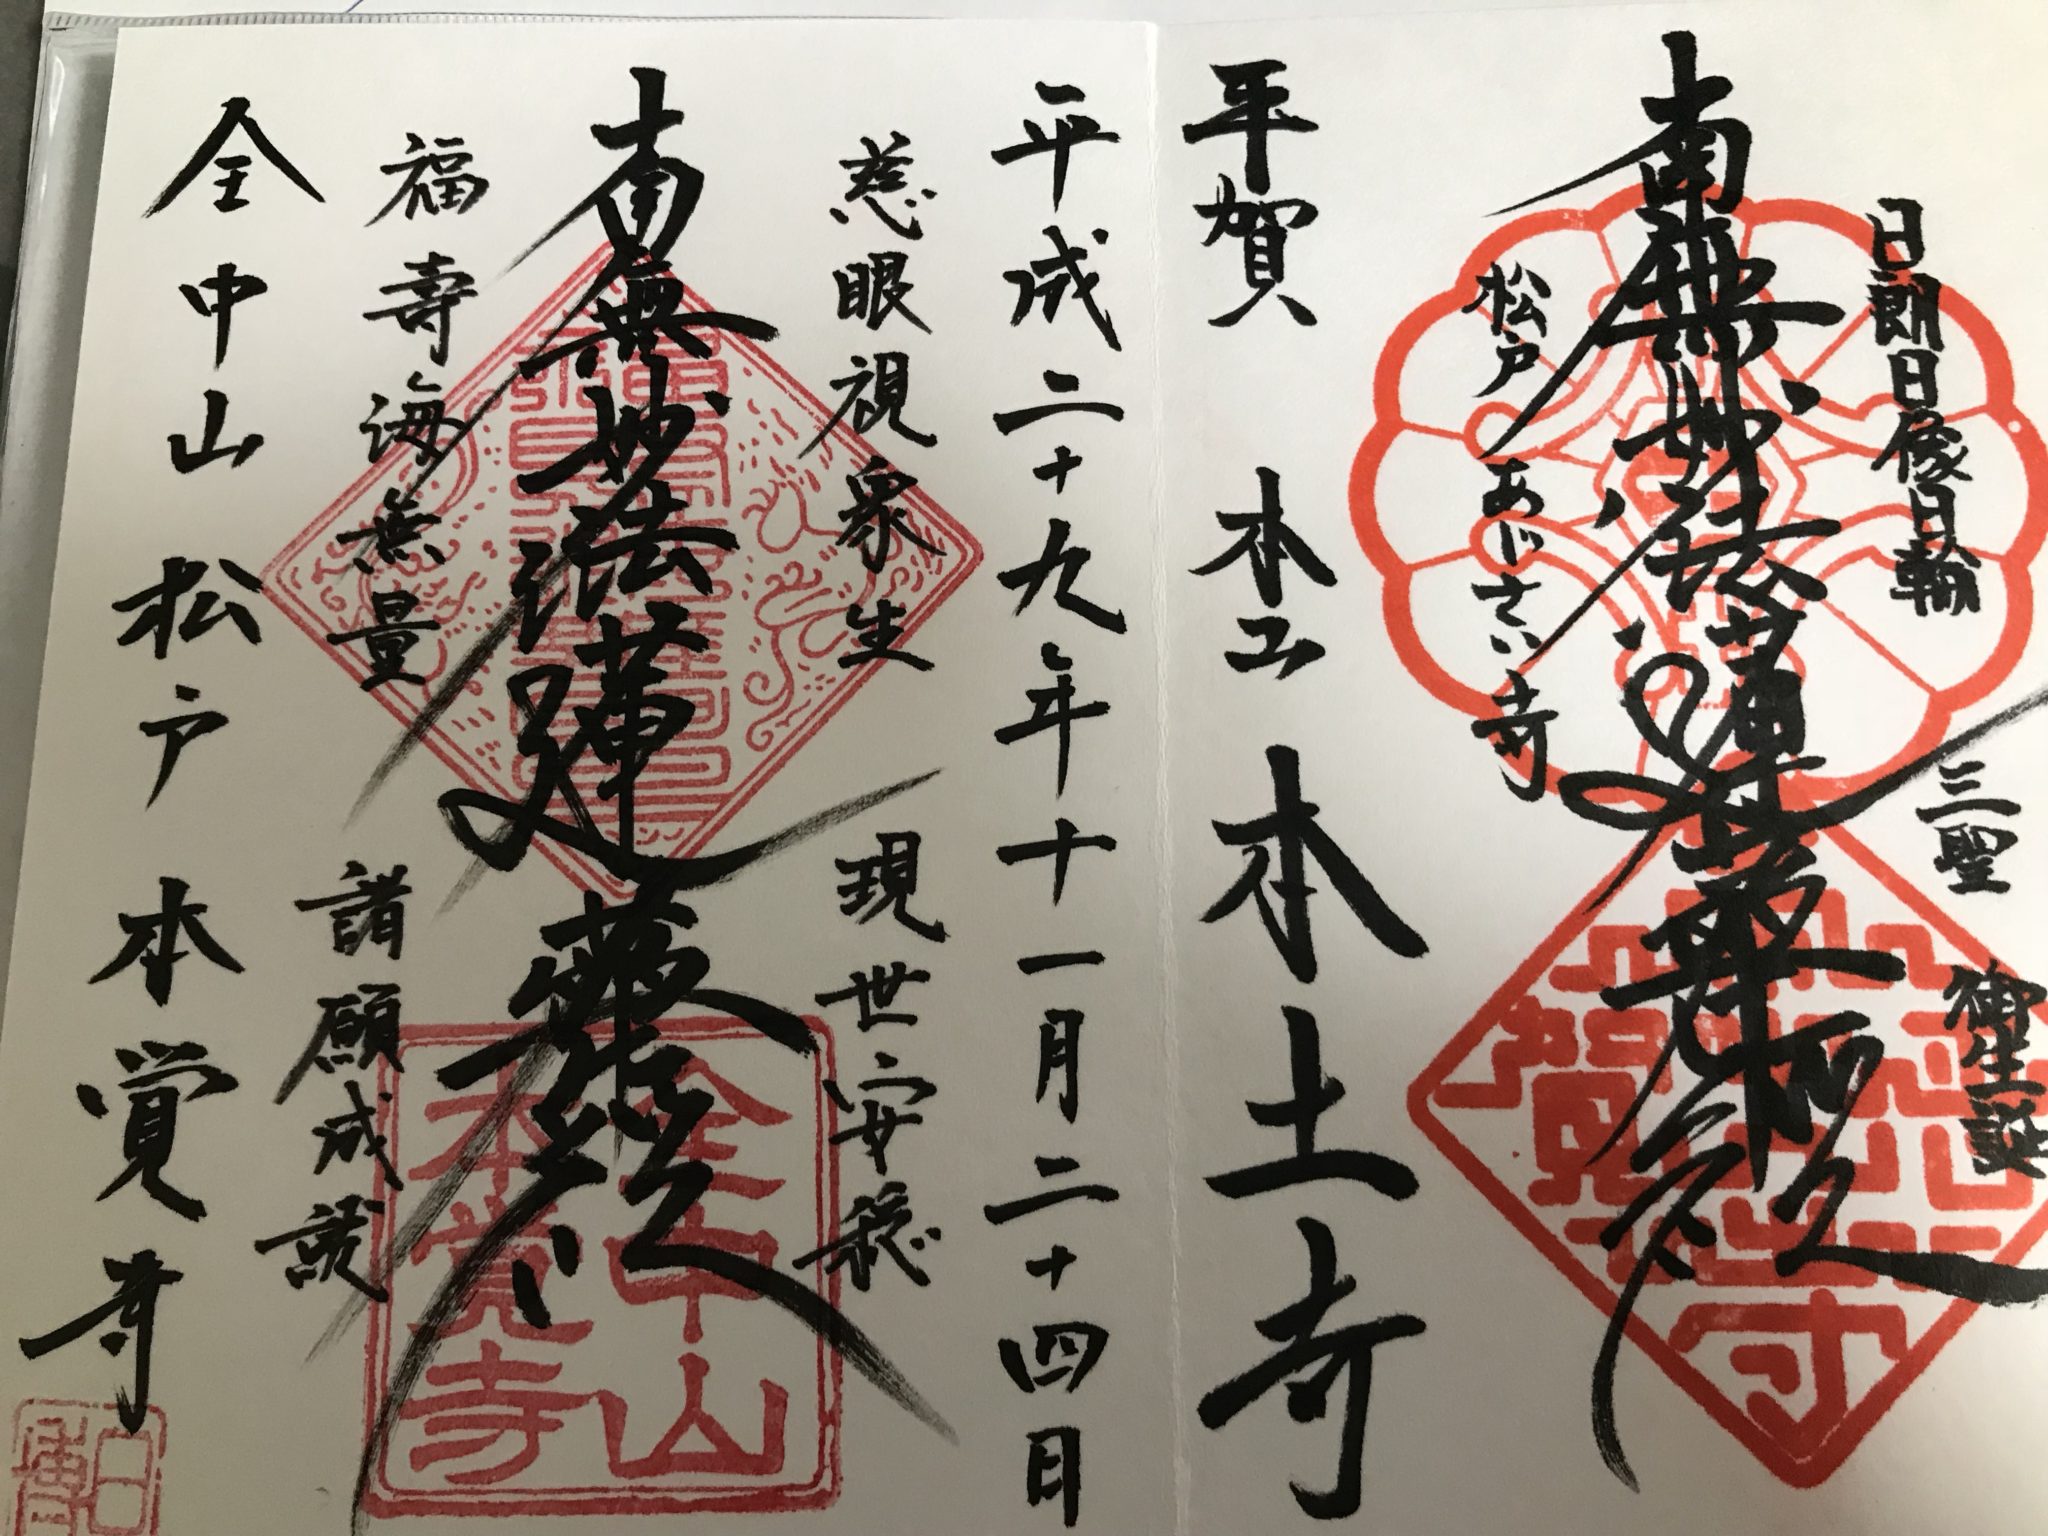 日朗日像日輪
三聖
御生誕
南無妙法蓮華経
松戸 あじさい寺
平賀 本山 本土寺
平成二十九年十一月二十四日
慈眼視衆生
現世安穏
南無妙法蓮華経
福壽海無量
諸願成就
全中山 松戸 本覚寺
全中山
本覚寺